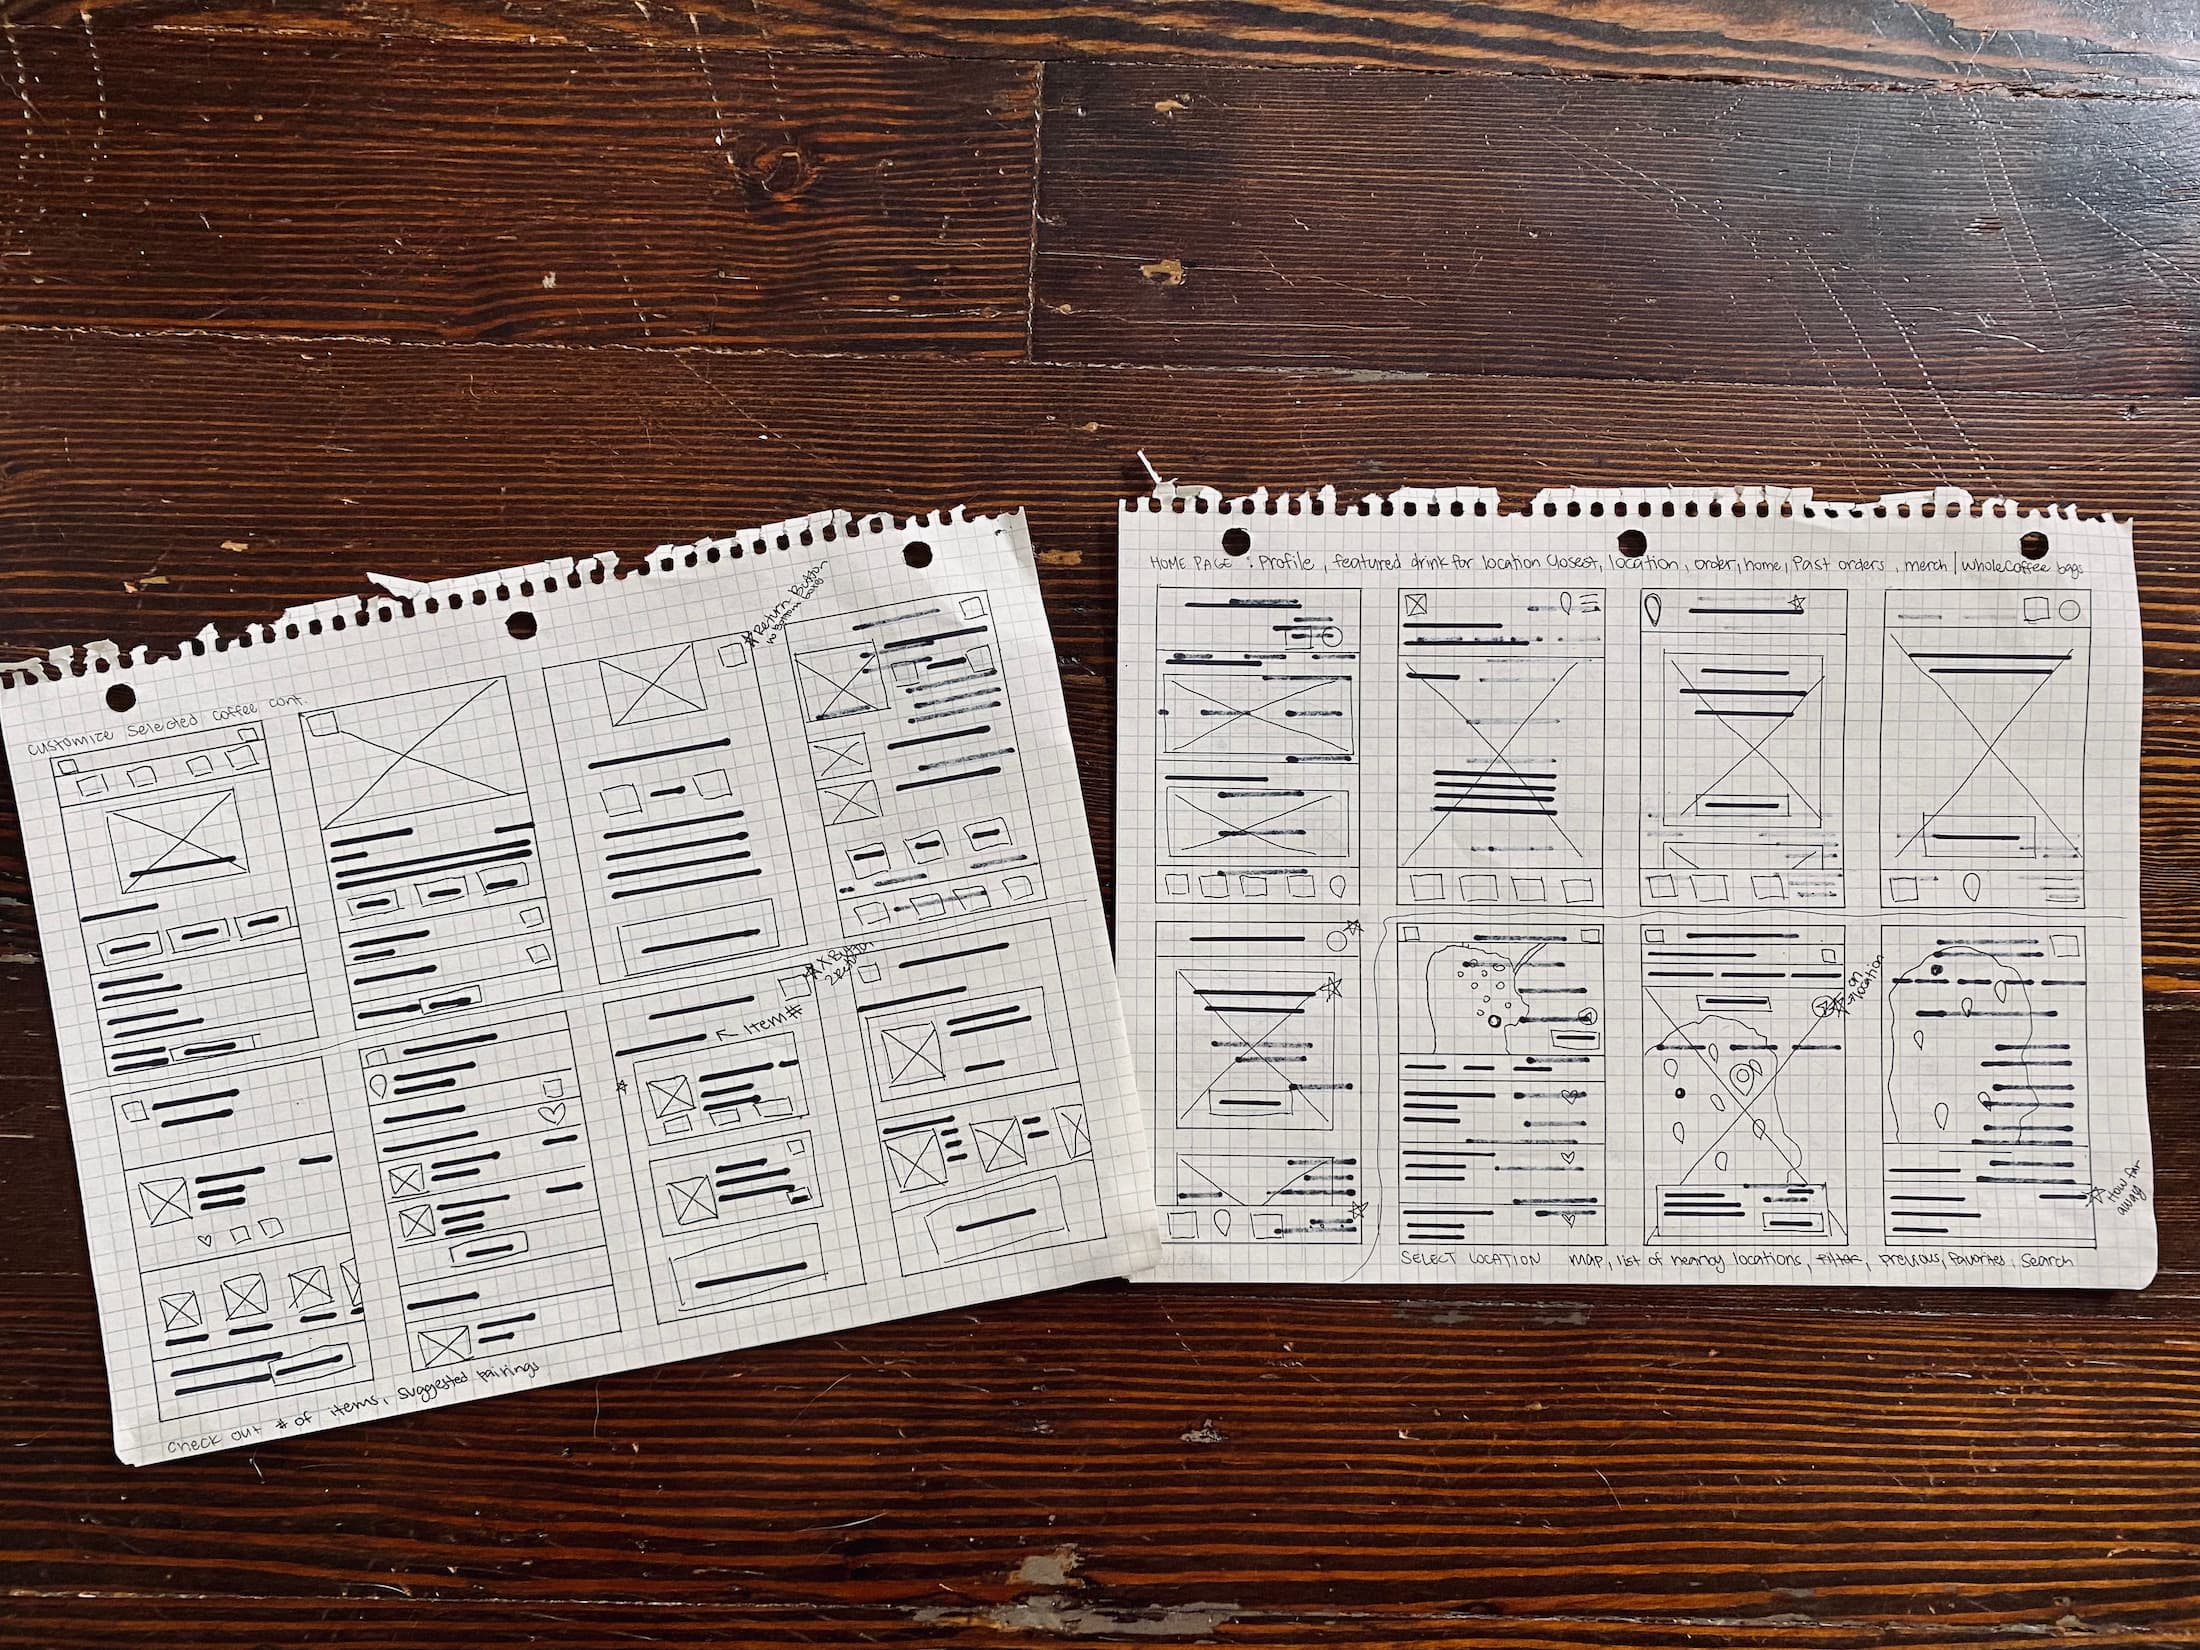 customize selected coffee cont.
☆ Return Button
w bottom boxes
☆ X Button
← Item #
Check out # of items, suggested pairings
HOME PAGE : Profile, featured drink for location closest, location, order, home, Past orders, merch | whole coffee bags
on
location
☆ How far
away
SELECT LOCATION map, list of nearby locations, filter, previous, favorites, search